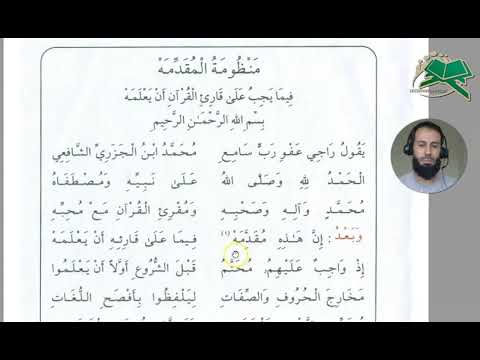 مَنْظُومَةُ الْمُقَدِّمَهْ
فِيمَا يَجِبُ عَلَىٰ قَارِئِ الْقُرْآنِ أَنْ يَعْلَمَهْ
بِسْمِ اللهِ الرَّحْمَـٰنِ الرَّحِيمِ
يَقُولُ رَاجِي عَفْوِ رَبٍّ سَامِعِ مُحَمَّدُ ابْنُ الْجَزَرِيِّ الشَّافِعِي
الْحَمْدُ لِلهِ وَصَلَّى اللهُ عَلَىٰ نَبِيِّهِ وَمُصْطَفَاهُ
مُحَمَّدٍ وَآلِهِ وَصَحْبِهِ وَمُقْرِئِ الْقُرْآنِ مَعْ مُحِبِّهِ
وَبَعْدُ: إِنَّ هَـٰذِهِ مُقَدِّمَهْ (١) فِيمَا عَلَىٰ قَارِئِهِ أَنْ يَعْلَمَهْ
إِذْ وَاجِبٌ عَلَيْهِمُ مُحَتَّمُ قَبْلَ الشُّرُوعِ أَوَّلًا أَنْ يَعْلَمُوا
مَخَارِجَ الْحُرُوفِ وَالصِّفَاتِ لِيَلْفِظُوا بِأَفْصَحِ اللُّغَاتِ